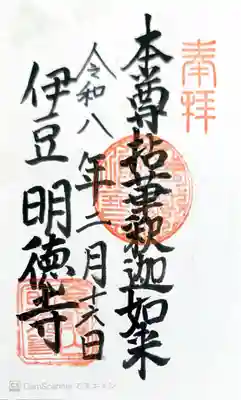 奉拝
本尊拈華釈迦如来
令和八年二月十六日
伊豆 明徳寺
CamScanner でスキャン